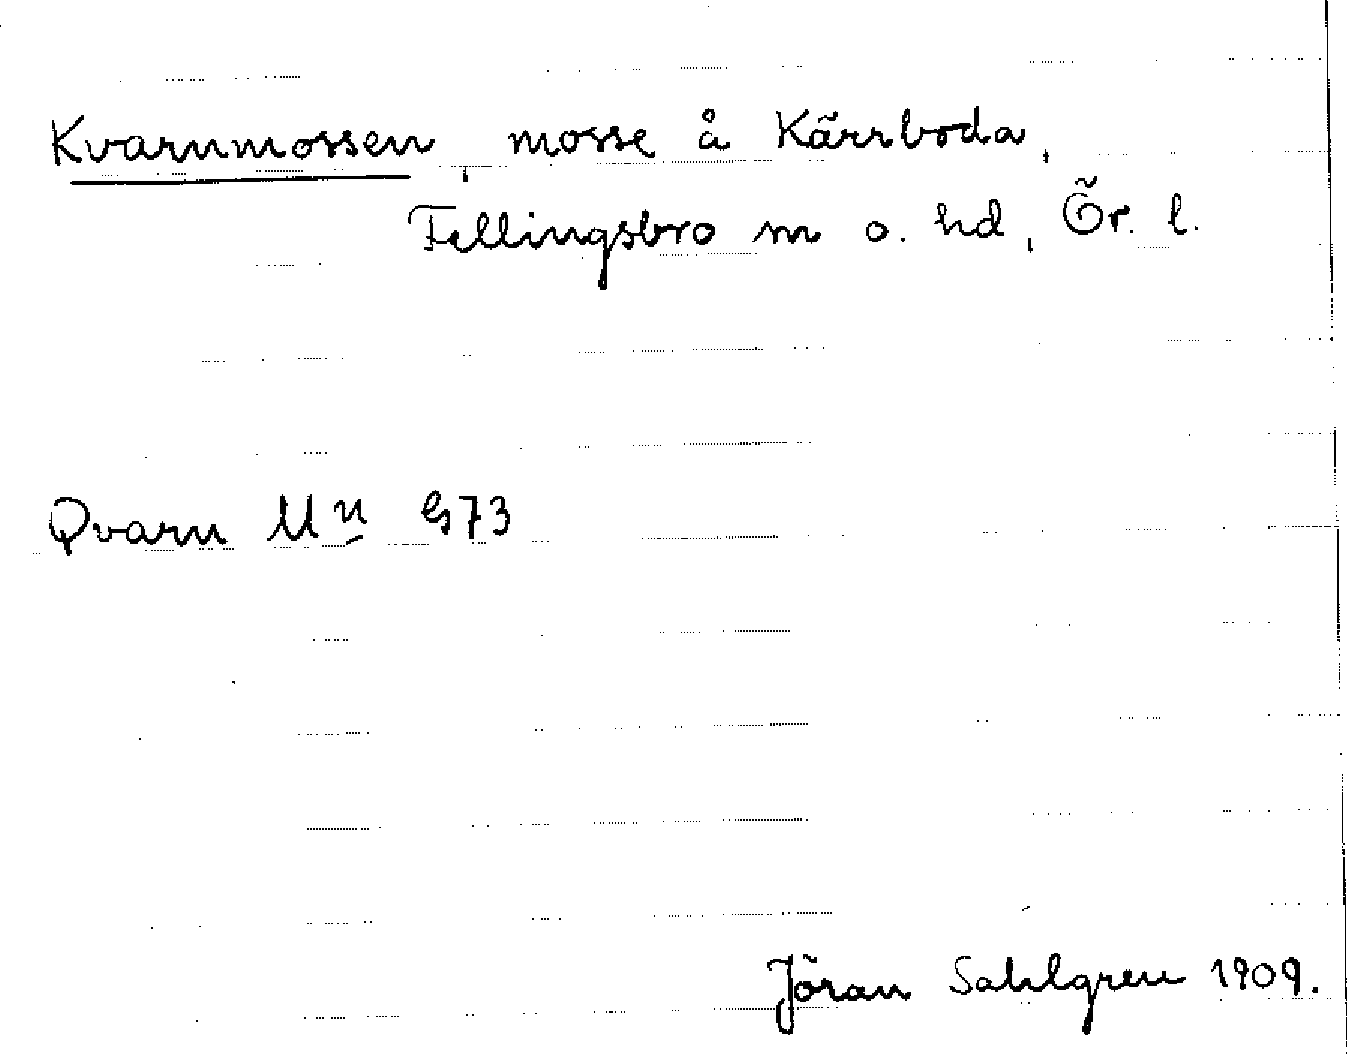 Kvarnmossen, mosse å Kärrboda,
Fellingsbro sn o. hd, Ör. l.
Qvarn Mn G73
Jöran Sahlgren 1909.